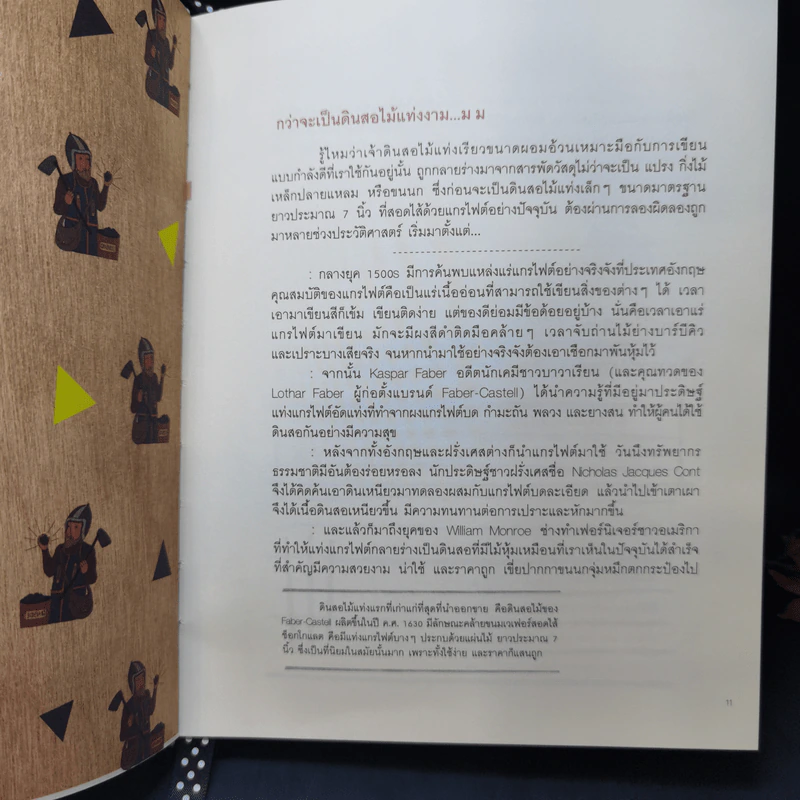 กว่าจะเป็นดินสอไม้แท่งงาม...ม ม
รู้ไหมว่าเจ้าดินสอไม้แท่งเรียวขนาดผอมอ้วนเหมาะมือกับการเขียน
แบบกำลังดีที่เราใช้กันอยู่นั้น ถูกกลายร่างมาจากสารพัดวัสดุไม่ว่าจะเป็น แปรง กิ่งไม้
เหล็กปลายแหลม หรือขนนก ซึ่งก่อนจะเป็นดินสอไม้แท่งเล็กๆ ขนาดมาตรฐาน
ยาวประมาณ 7 นิ้ว ที่สอดไส้ด้วยแกรไฟต์อย่างปัจจุบัน ต้องผ่านการลองผิดลองถูก
มาหลายช่วงประวัติศาสตร์ เริ่มมาตั้งแต่...
: กลางยุค 1500s มีการค้นพบแหล่งแร่แกรไฟต์อย่างจริงจังที่ประเทศอังกฤษ
คุณสมบัติของแกรไฟต์คือเป็นแร่เนื้ออ่อนที่สามารถใช้เขียนสิ่งของต่างๆ ได้ เวลา
เอามาเขียนสีก็เข้ม เขียนติดง่าย แต่ของดีย่อมมีข้อด้อยอยู่บ้าง นั่นคือเวลาเอาแร่
แกรไฟต์มาเขียน มักจะมีผงสีดำติดมือคล้ายๆ เวลาจับถ่านไม้ย่างบาร์บีคิว
และเปราะบางเสียจริง จนหากนำมาใช้อย่างจริงจังต้องเอาเชือกมาพันหุ้มไว้
: จากนั้น Kaspar Faber อดีตนักเคมีชาวบาวาเรียน (และคุณทวดของ
Lothar Faber ผู้ก่อตั้งแบรนด์ Faber-Castell) ได้นำความรู้ที่มีอยู่มาประดิษฐ์
แท่งแกรไฟต์อัดแท่งที่ทำจากผงแกรไฟต์บด กำมะถัน พลวง และยางสน ทำให้ผู้คนได้ใช้
ดินสอกันอย่างมีความสุข
: หลังจากทั้งอังกฤษและฝรั่งเศสต่างก็นำแกรไฟต์มาใช้ วันนึงทรัพยากร
ธรรมชาติมีอันต้องร่อยหรอลง นักประดิษฐ์ชาวฝรั่งเศสชื่อ Nicholas Jacques Cont
จึงได้คิดค้นเอาดินเหนียวมาทดลองผสมกับแกรไฟต์บดละเอียด แล้วนำไปเข้าเตาเผา
จึงได้เนื้อดินสอเหนียวขึ้น มีความทนทานต่อการเปราะและหักมากขึ้น
: และแล้วก็มาถึงยุคของ William Monroe ช่างทำเฟอร์นิเจอร์ชาวอเมริกา
ที่ทำให้แท่งแกรไฟต์กลายร่างเป็นดินสอที่มีไม้หุ้มเหมือนที่เราเห็นในปัจจุบันได้สำเร็จ
ที่สำคัญมีความสวยงาม น่าใช้ และราคาถูก เขี่ยปากกาขนนกจุ่มหมึกตกกระป๋องไป
ดินสอไม้แท่งแรกที่เก่าแก่ที่สุดที่นำออกขาย คือดินสอไม้ของ
Faber-Castell ผลิตขึ้นในปี ค.ศ. 1630 มีลักษณะคล้ายขนมเวเฟอร์สอดไส้
ช็อกโกแลต คือมีแท่งแกรไฟต์บางๆ ประกบด้วยแผ่นไม้ ยาวประมาณ 7
นิ้ว ซึ่งเป็นที่นิยมในสมัยนั้นมาก เพราะทั้งใช้ง่าย และราคาก็แสนถูก
11